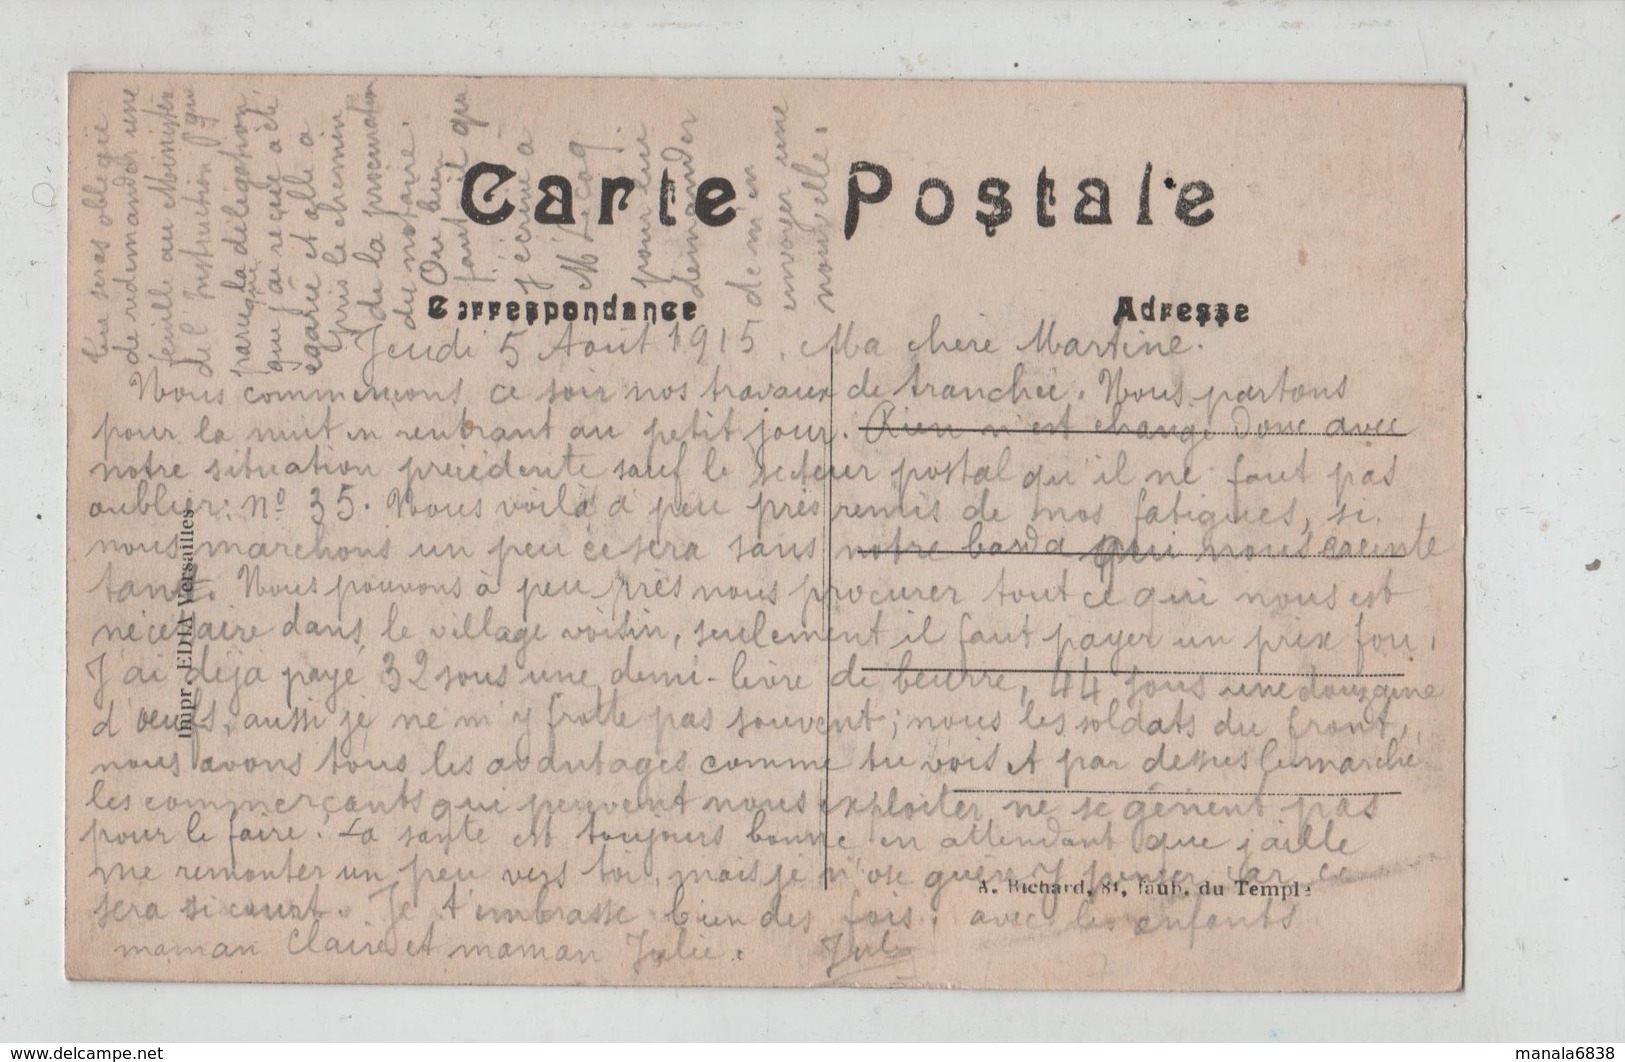 Carte Postale
Correspondance
Adresse
Jeudi 5 Août 1915. Ma chère Martine.
Nous commençons ce soir nos travaux de tranchée. Nous partons
pour la nuit en rentrant au petit jour. Rien n'est changé donc avec
notre situation précédente sauf le secteur postal qu'il ne faut pas
oublier: nº 35. Nous voilà à peu près remis de nos fatigues, si
nous marchons un peu ce sera sans notre barda qui nous éreinte
tant. Nous pouvons à peu près nous procurer tout ce qui nous est
nécessaire dans le village voisin, seulement il faut payer un prix fou.
J'ai déjà payé 32 sous une demi-livre de beurre, 44 sous une douzaine
d'oeufs, aussi je ne m'y frotte pas souvent; nous les soldats du front,
nous avons tous les avantages comme tu vois et par dessus le marché
les commerçants qui peuvent nous exploiter ne se gênent pas
pour le faire. La santé est toujours bonne en attendant que j'aille
me remonter un peu vers toi, mais je n'ose guère y penser car ce
sera si court. Je t'embrasse bien des fois, avec les enfants
maman Claire et maman Julie. Jules
Tu seras obligée
de redemander une
feuille au Ministère
de l'Instruction Pque
parceque la délégation
que j'ai reçue a été
égarée et elle a
pris le chemin
de la procuration
du notaire.
Ou bien
faut-il que
j'écrive à
M. Lecoq
pour lui
demander
de m'en
envoyer une
nouvelle.
Impr. EDIA Versailles
A. Richard, 84, faub. du Temple
manala6838